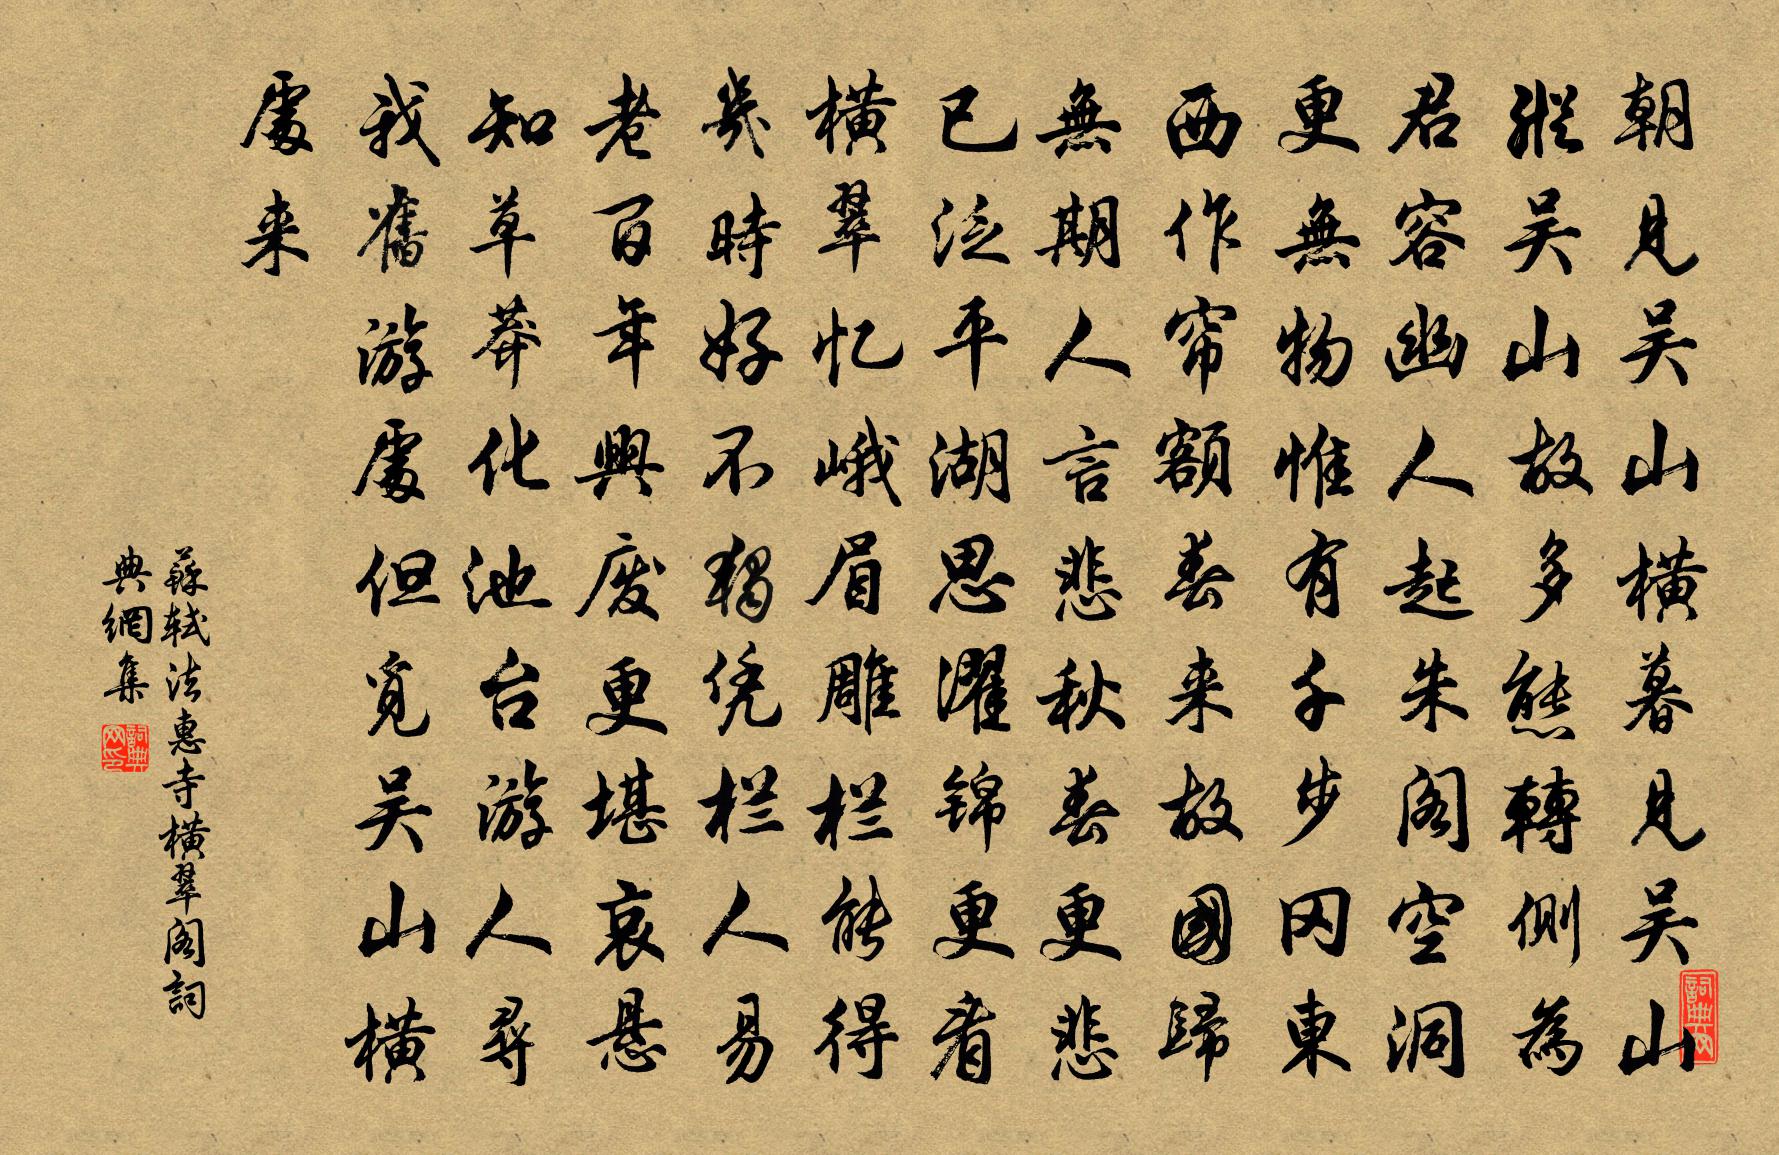 朝見吴山横暮見吴山
縱吴山故多態轉側為
君容幽人起朱阁空洞
更無物惟有千步冈東
西作帘额春来故國歸
無期人言悲秋春更悲
已泛平湖思濯锦更看
横翠忆峨眉雕栏能得
幾時好不獨凭栏人易
老百年興废更堪哀悬
知草莽化池台游人尋
我舊游處但觅吴山横
處来
蘇軾法惠寺横翠阁詞
典網集
詞典网印
詞典网